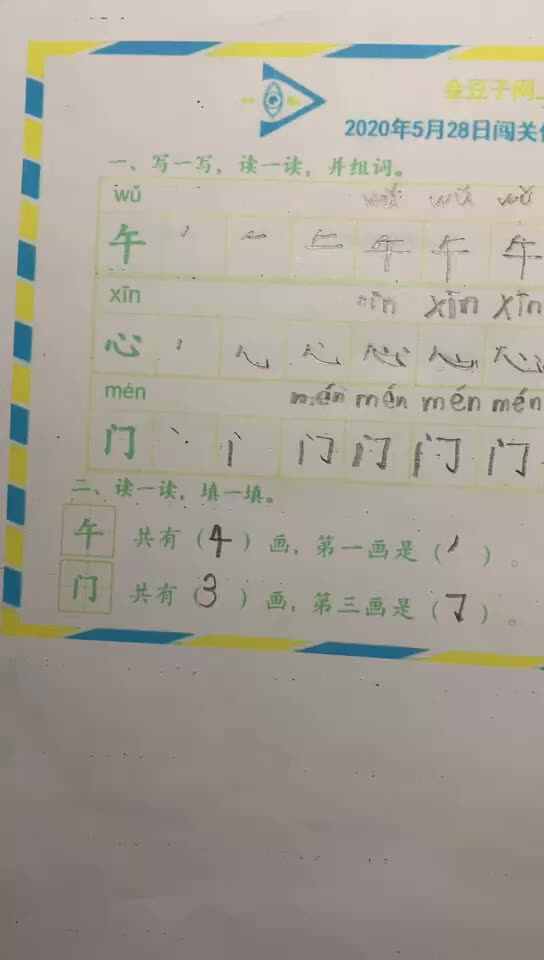 金豆子闯
2020年5月28日闯关
一、写一写，读一读，并组词。
wǔ wǔ wǔ wǔ
午 丿 𠂉 午 午 午
xīn xīn xīn xīn
心 心 心 心
mén mén mén mén mén
门 丶 门 门 门 门
二、读一读，填一填。
午 共有（4）画，第一画是（丿）。
门 共有（3）画，第三画是（𠃌）。